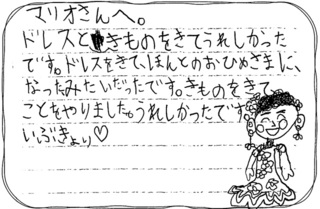 マリオさんへ。
ドレスときものをきてうれしかった
です。ドレスをきて、ほんとのおひめさまに、
なったみたいだったです。きものをきて
ことをやりました。うれしかったです
いぶきより♡